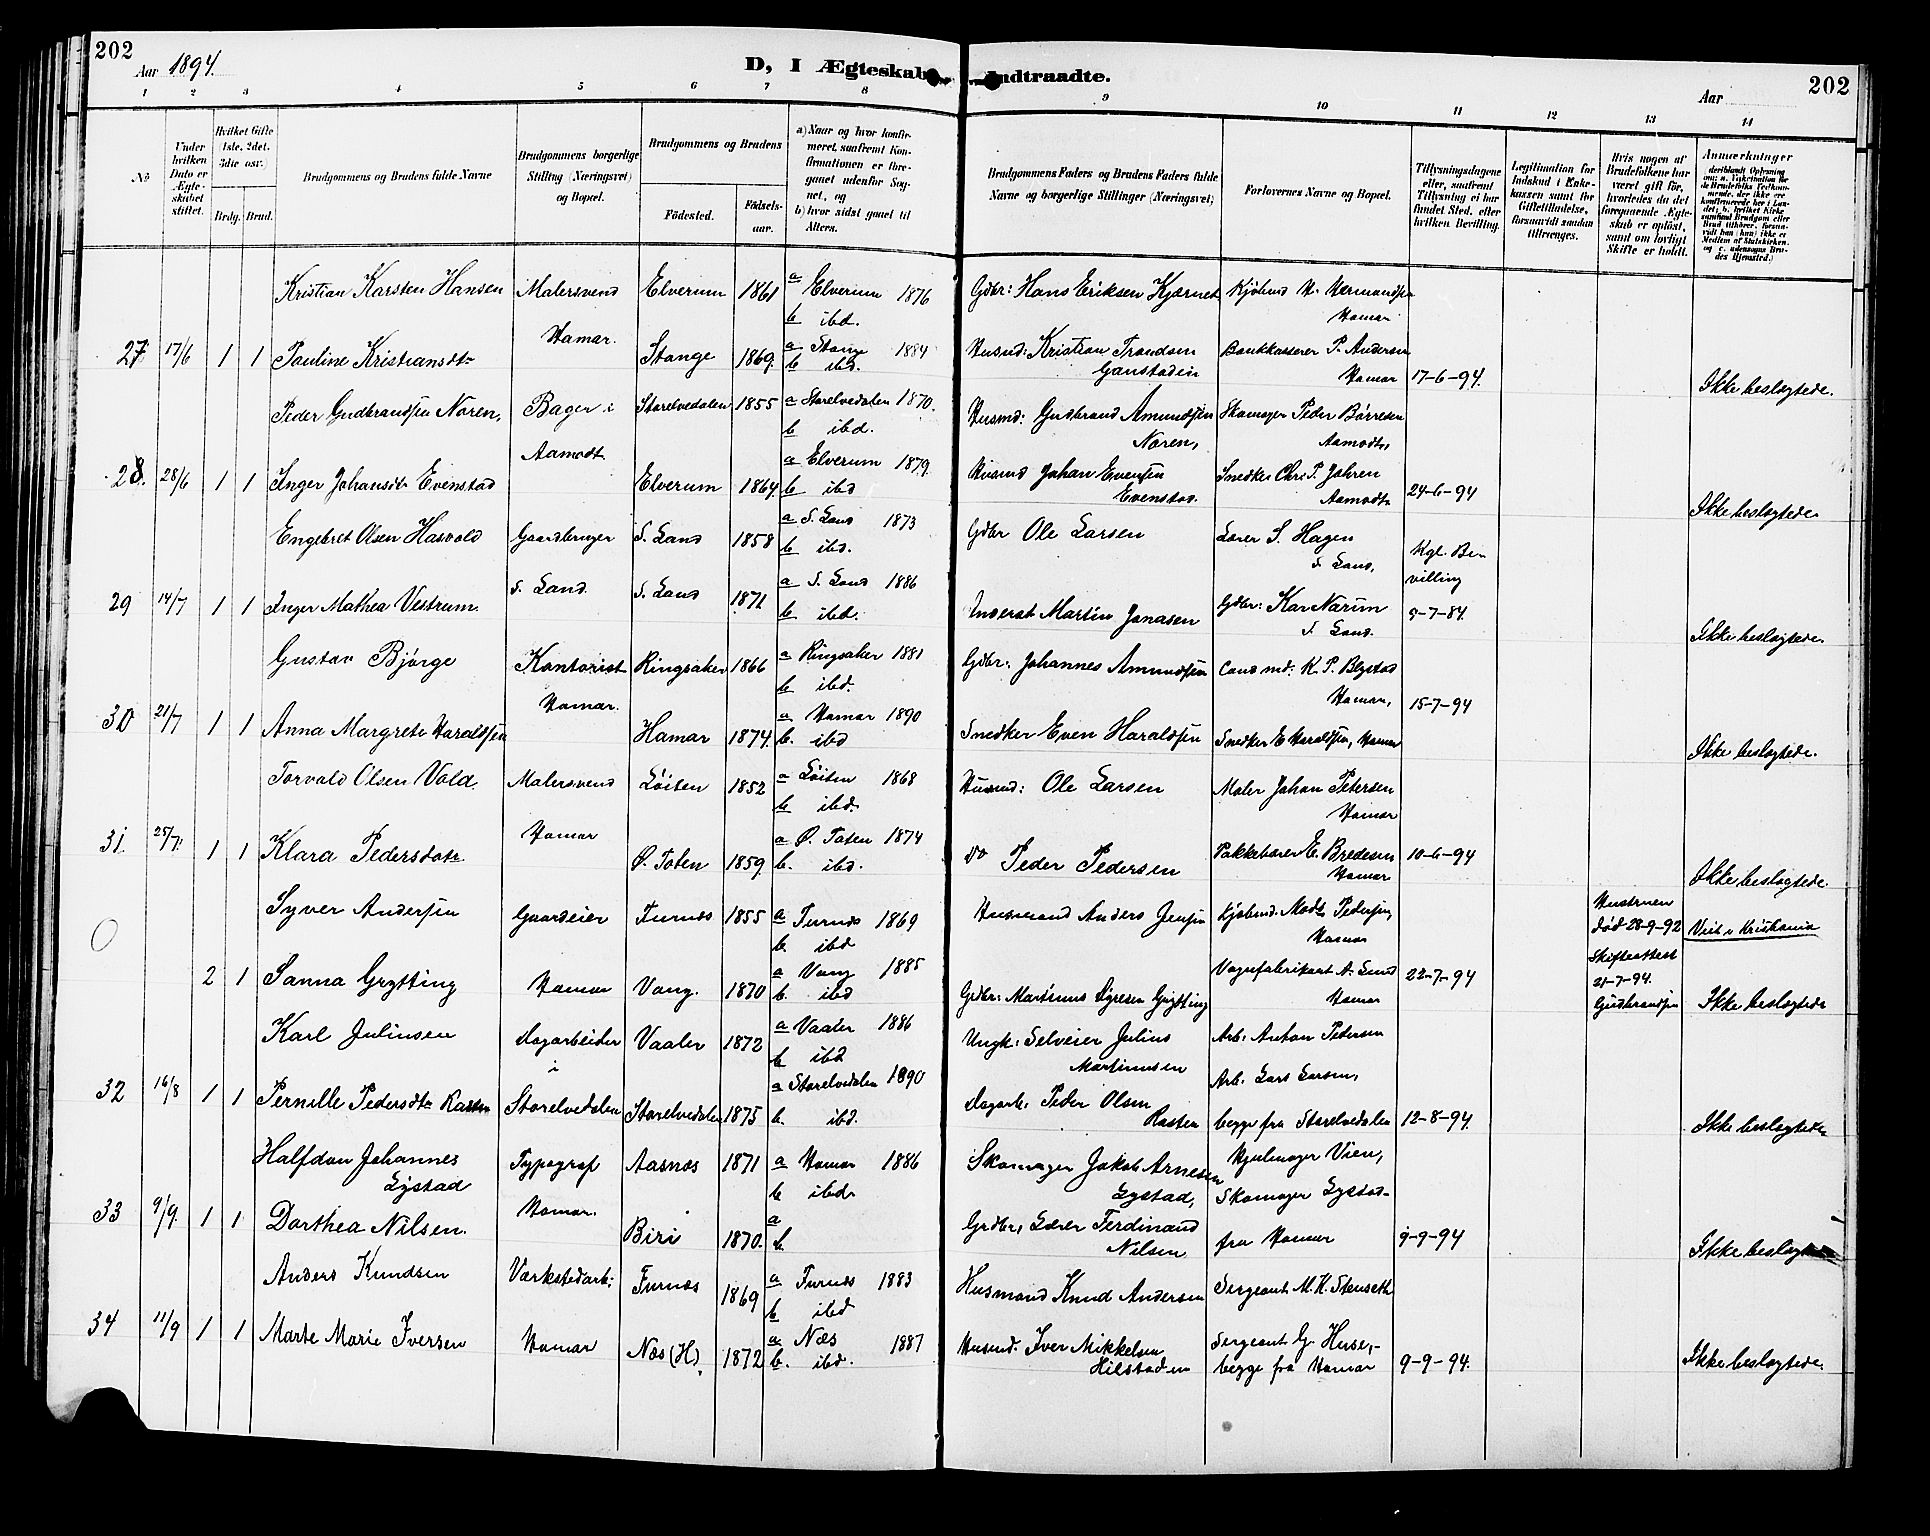 202
Aar 1894.
D, I Ægteskab
Indtraadte.
Aar
202
1 2 3 4 5 6 7 8 9 10 11 12 13 14
No
Under hvilken Dato er Ægteskabet stiftet.
Hvilket Gifte 1ste, 2det, 3die osv.
Brdg. Brud.
Brudgommens og Brudens fulde Navne
Brudgommens borgerlige Stilling (Næringsvei) og Bopæl.
Brudgommens og Brudens
Fødested.
Fødselsaar.
a) Naar og hvor konfirmeret, saafremt Konfirmationen er foregaaet udenfor Sognet, og
b) hvor sidst gaaet til Alters.
Brudgommens Faders og Brudens Faders fulde Navne og borgerlige Stillinger (Næringsvei)
Forlovernes Navne og Bopæl.
Tillysningsdagene eller, saafremt Tillysning ei har fundet Sted, efter hvilken Bevilling.
Legitimation for Indskud i Enkekassen samt for Giftetilladelse, forsaavidt saadan tiltrænges.
Hvis nogen af Brudefolkene har været gift før, hvorledes da det foregaaende Ægteskab er opløst, samt om lovligt Skifte er holdt.
Anmærkninger
Kristian Karsten Hansen Malersvend Elverum 1861 a Elverum 1876 Gdbr: Hans Eriksen Kjærnet
b ibd. Hamar
27 17/6 1 1 Pauline Kristiansdtr Hamar. Stange 1869. a Stange 1884 Husmd: Kristian Trondsen Bankkasserer P. Andersen
b ibd. Hamar 17-6-94. Ikke beslægtede.
Peder Gudbrandsen Noren, Bager i Storelvedalen 1855 a Storelvedalen 1870. Husmd: Gudbrand Amundsen Skomager Peder Børresen
Aamodt b ibd. Noren, Aamodt,
28. 28/6 1 1 Inger Johansdtr Evenstad Elverum 1864 a Elverum 1879. Husmd Johan Evensen Snedker Chr. P. Jahren
b ibd Evenstad. Aamodt 24-6-94 Ikke beslægtede
Engebret Olsen Hasvold Gaardbruger S. Land 1858 a S. Land 1873 Gdbr Ole Larsen Lærer S. Hagen
b ibd. S. Land, Kgl. Bevilling
29 14/7 1 1 Inger Mathea Vestrum. S. Land. S. Land 1871 a S. Land 1886 Martin Jonasen Gdbr: Kar Narum
b ibd. S. Land. 5-7-84. Ikke beslægtede.
Gustav Bjørge Kontorist Ringsaker 1866 a Ringsaker 1881 Gdbr: Johannes Amundsen Cand md: K. P. Blystad
b ibd. Hamar, 15-7-94
30 21/7 1 1 Anna Margrete Haraldsen Hamar. Hamar 1874. a Hamar 1890 Snedker Even Haraldsen Snedker E Haraldsen, Hamar
b. ibd Ikke beslægtede.
Torvald Olsen Vold. Malersvend Løiten 1852 a Løiten 1868 Husmd: Ole Larsen Maler Johan Petersen
b ibd. Hamar
31. 25/7. 1 1 Klara Pedersdatr. Hamar Ø. Toten 1859. a Ø. Toten 1874 do Peder Pedersen Pakkebærer E. Bredesen 10-6-94
b. ibd. Hamar Ikke beslægtede.
Syver Andersen Gaardeier Furnæs 1855 a Furnæs 1869 Husmand Anders Jensen Kjøbmd. Pedersen, Hustruen død 28-9-92 Viet i Kristiania
b. ibd Hamar Skifteattest 21-7-94.
2 1 Sanna Grytting Hamar Vang. 1870 a Vang 1885 Gdbr: Martinus Grytting Vognfabrikant A. Lund 22-7-94 Gudbrandsen
b. ibd Hamar Ikke beslægtede
Karl Juliusen Dagarbeider Vaaler 1872 a Vaaler 1886 Ungk: Selveier Julius Arb: Anton Pedersen
i b ibd Martinusen Arb. Lars Larsen,
32 16/8 1 1 Pernille Pedersdtr Rasten Storelvedalen Storelvedalen 1875 a Storelvedalen 1890 Dagarb. Peder Olsen
b. ibd. Rasten begge fra Storelvedalen 12-8-94. Ikke beslægtede.
Halfdan Johannes Typograf Aasnæs 1871 a Hamar 1886 Skomager Jakob Arnesen Hjulmager Vien,
Lystad b ibd. Lystad, Skomager Lystad-
33 9/9. 1 1 Dorthea Nilsen. Hamar. Biri 1870. a Grdbr, Lærer Ferdinand fra Hamar 9-9-94
b. Nilsen Ikke beslægtede
Anders Knudsen Værkstedarb: Furnæs 1869 a Furnæs 1883 Husmand Knud Andersen Sergeant M. K. Stenseth
b ibd
34 11/9 1 1 Marte Marie Iversen Hamar Næs (H), 1872 a Næs 1887 Husmd. Iver Mikkelsen Sergeant G. Huse,-
b. ibd. Hilstaden begge fra Hamar 9-9-94. Ikke beslægtede.